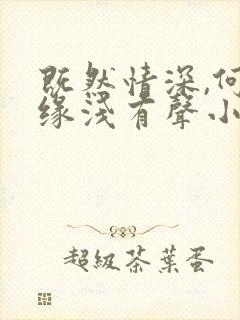 既然情深,何
缘浅有聲小
超級茶葉蛋